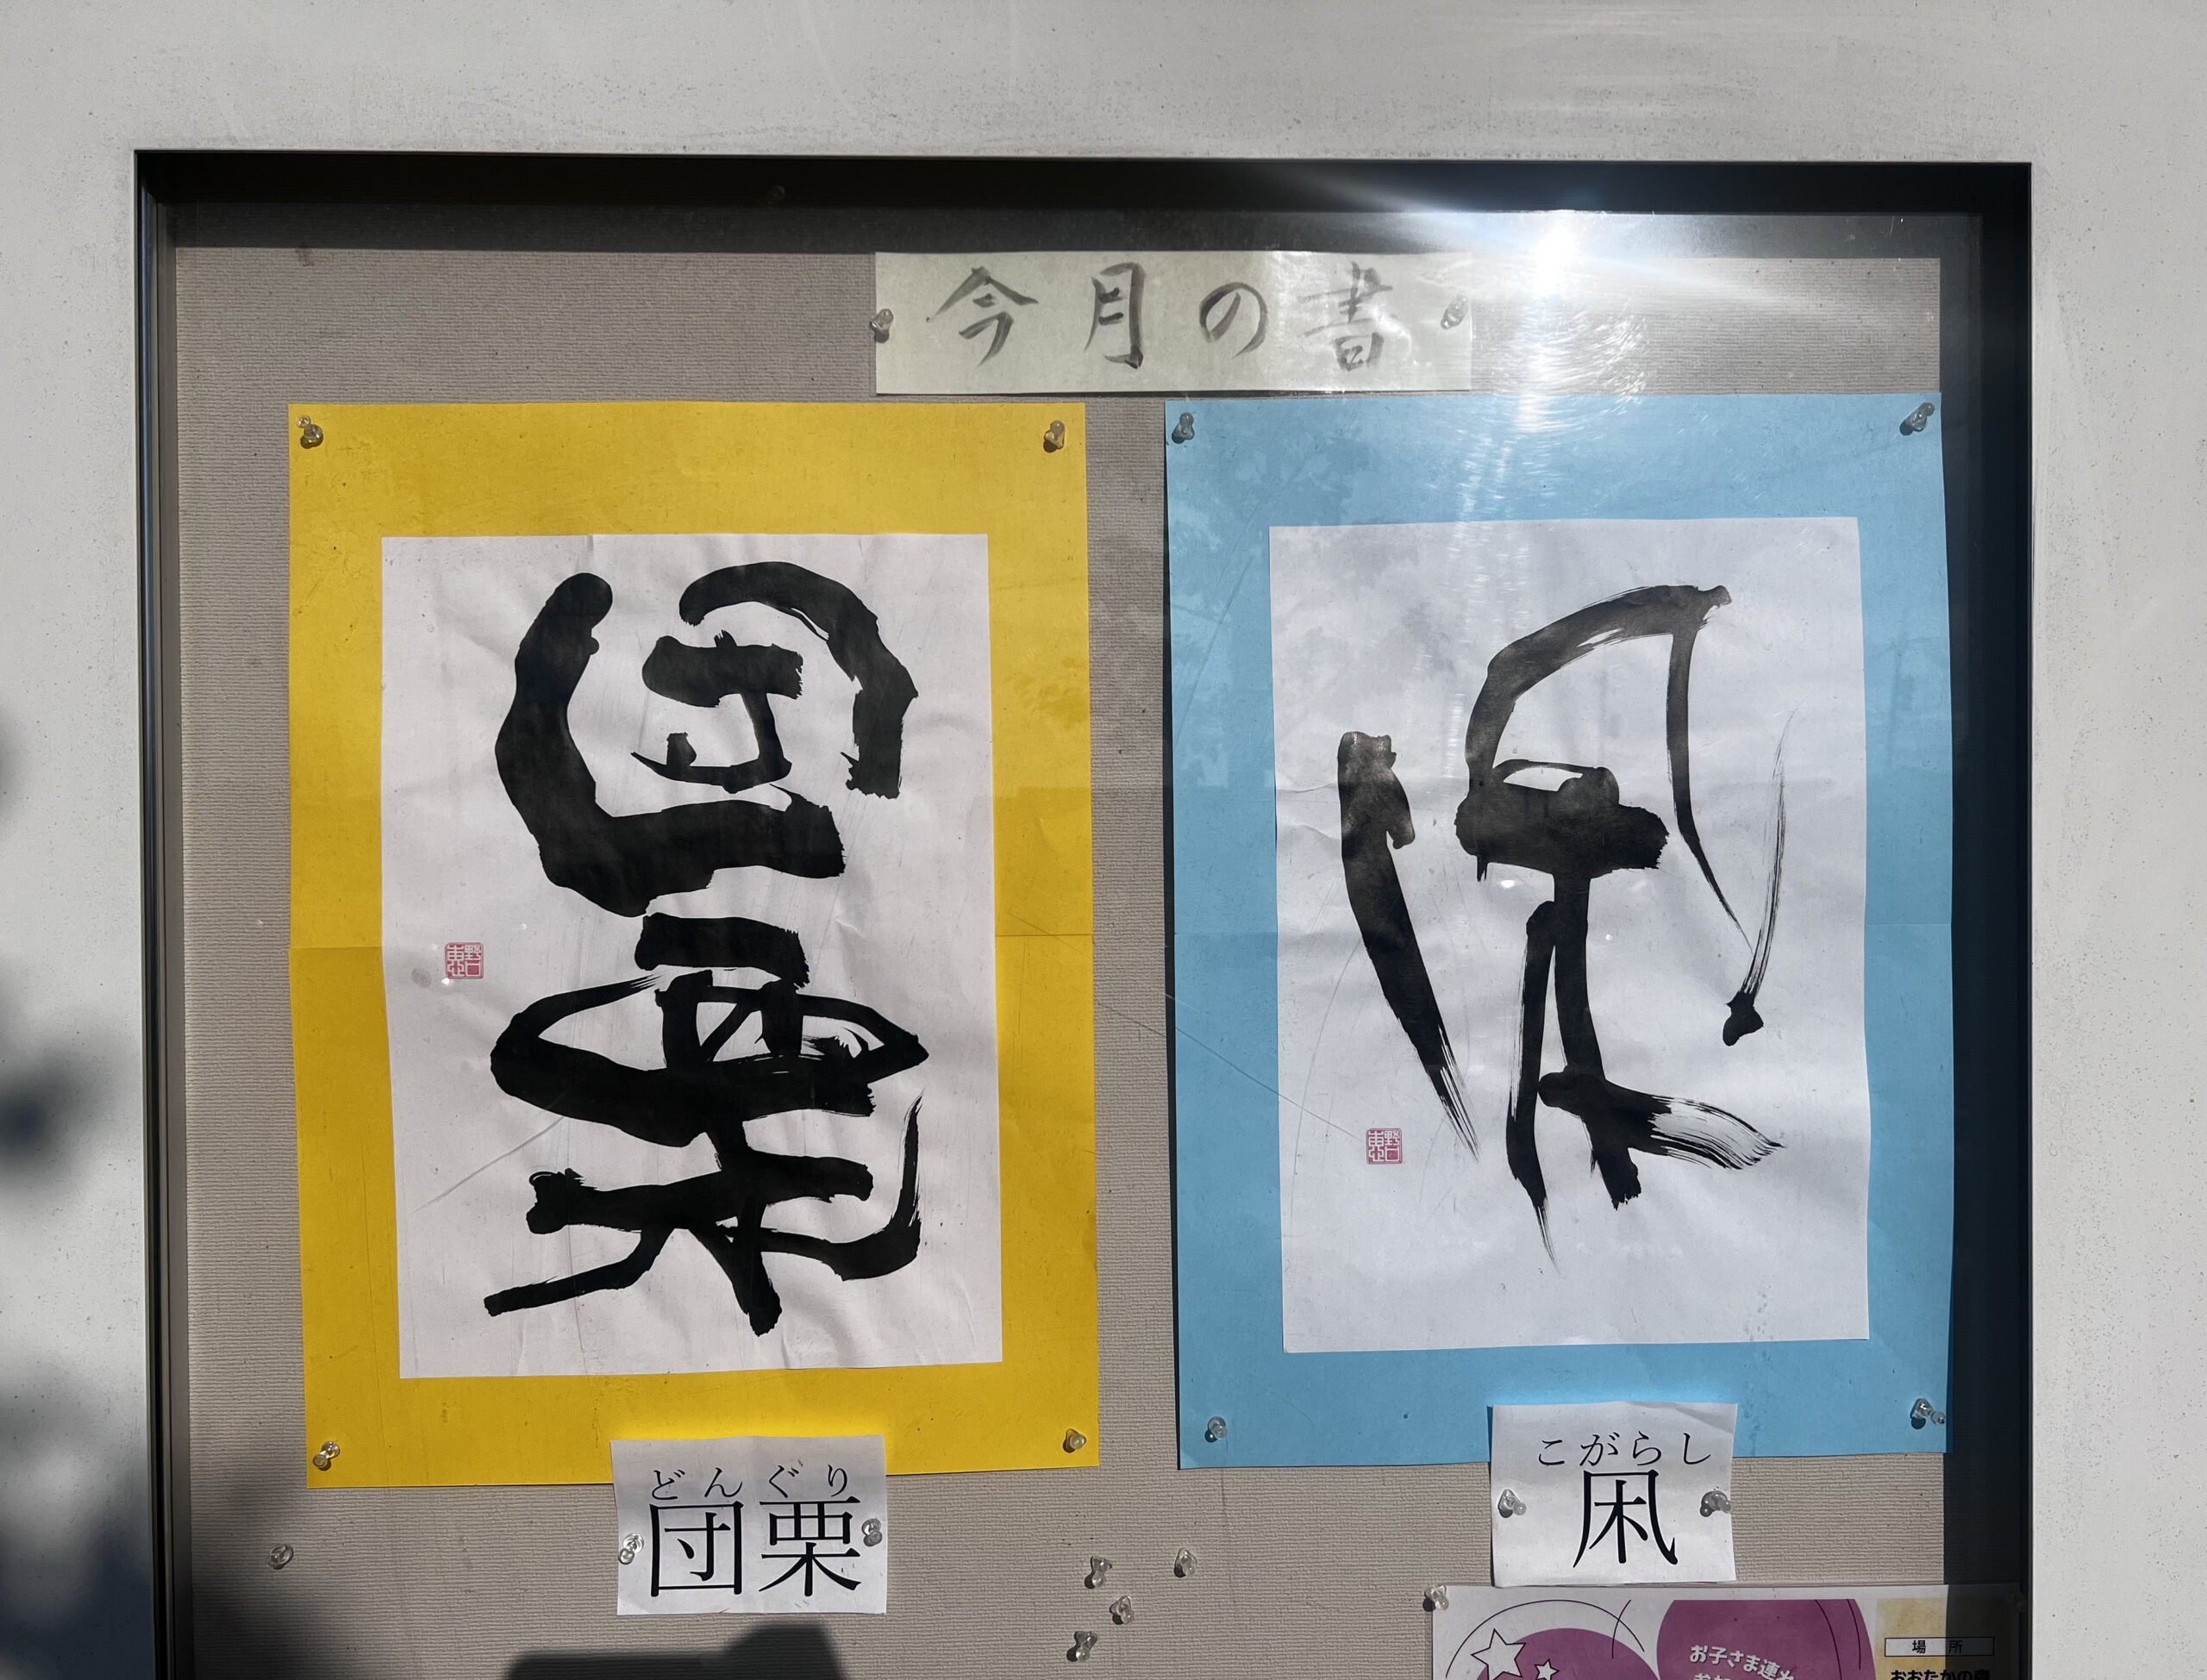 今月の書
団栗
凩
どんぐり
団栗
こがらし
凩
お子さま連れ
場所
おおたかの森